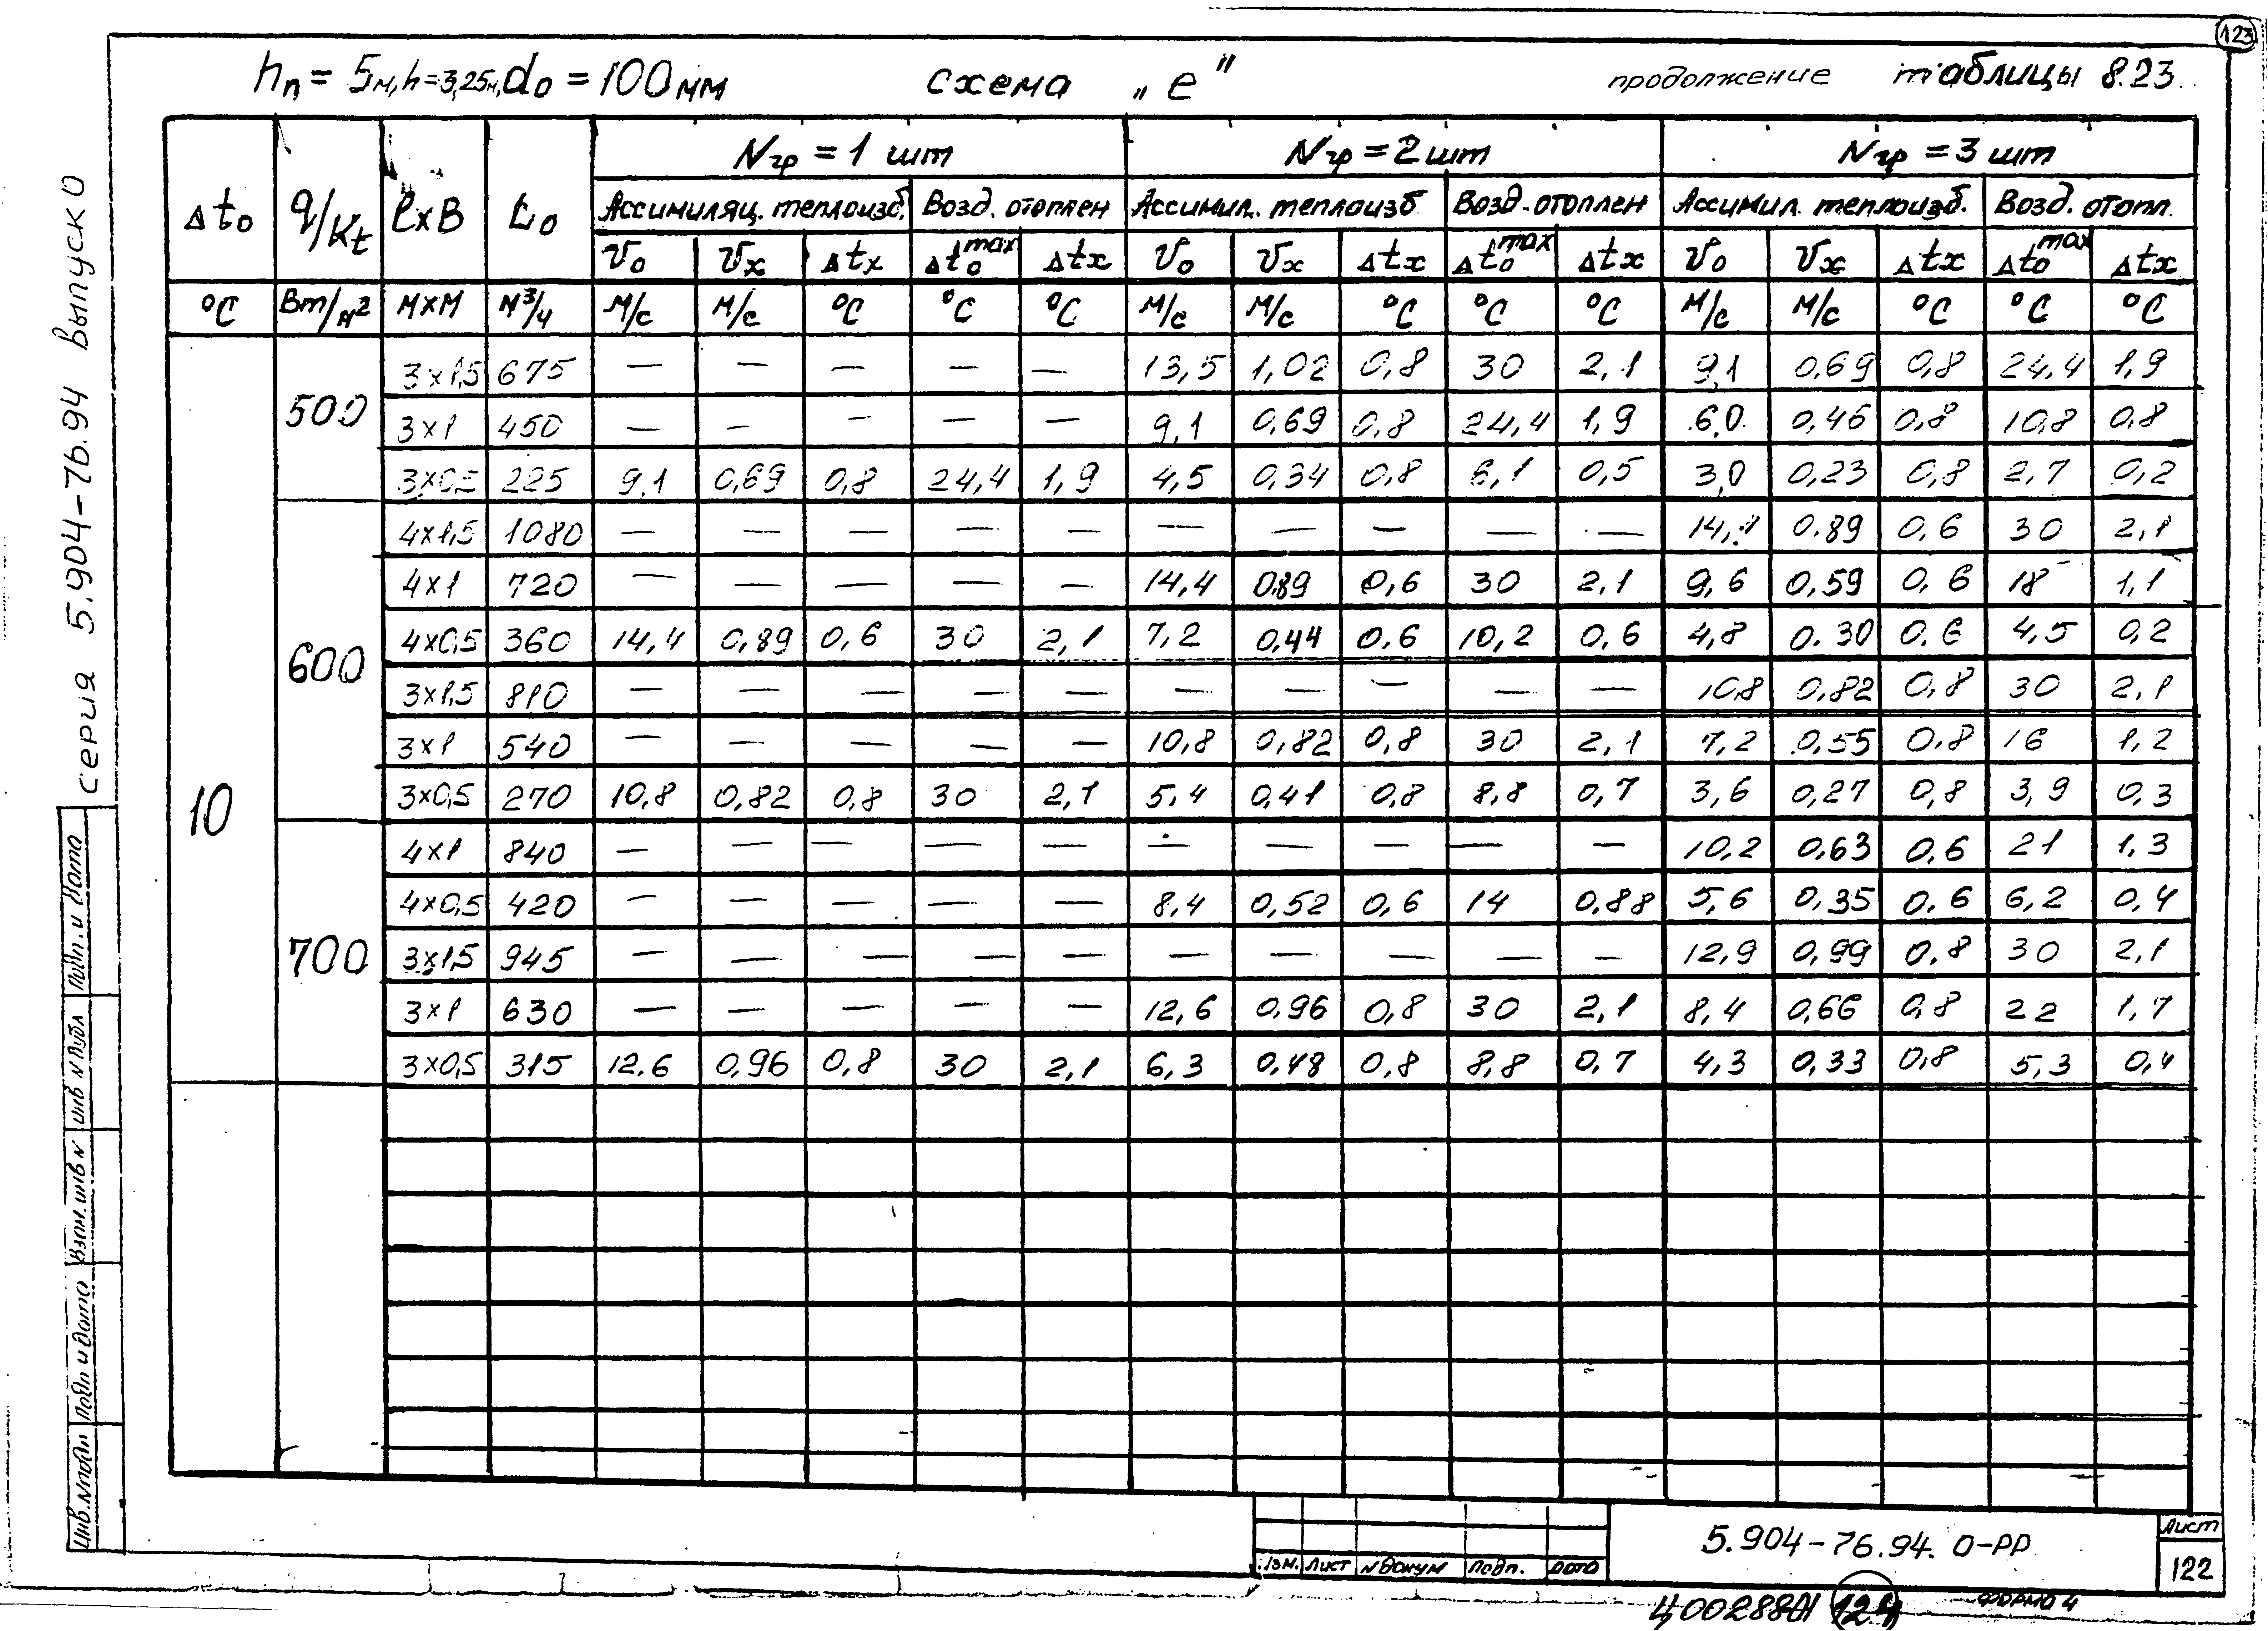 123
hп = 5м, h=3,25м, do = 100мм схема „е" продолжение таблицы 8.23.
серия 5.904-76.94 Выпуск 0
Δto q/Kt lxB Lo Nгр = 1 шт Nгр = 2 шт Nгр = 3 шт
Ассимиляц. теплоизб. Возд. отоплен Ассимил. теплоизб Возд. отоплен Ассимил. теплоизб. Возд. отопл.
vo vx Δtx Δto max Δtx vo vx Δtx Δto max Δtx vo vx Δtx Δto max Δtx
°C Вт/м² мхм м³/ч м/с м/с °C °C °C м/с м/с °C °C °C м/с м/с °C °C °C
10
500
3х1,5 675 — — — — — 13,5 1,02 0,8 30 2,1 9,1 0,69 0,8 24,4 1,9
3х1 450 — — — — — 9,1 0,69 0,8 24,4 1,9 6,0 0,46 0,8 10,8 0,8
3х0,5 225 9.1 0,69 0,8 24,4 1,9 4,5 0,34 0,8 6,1 0,5 3,0 0,23 0,8 2,7 0,2
600
4х1,5 1080 — — — — — — — — — — 0.89 0,6 30 2,1
4х1 720 — — — — — 14,4 0,89 0,6 30 2,1 9,6 0,59 0,6 18 1,1
4х0,5 360 14,4 0,89 0,6 30 2,1 7,2 0,44 0,6 10,2 0,6 4,8 0.30 0,6 4,5 0,2
3х1,5 810 — — — — — — — — — — 10,8 0,82 0,8 30 2,1
3х1 540 — — — — — 10,8 0,82 0,8 30 2,1 7,2 0,55 0,8 16 1,2
3х0,5 270 10,8 0,82 0,8 30 2,1 5,4 0,41 0,8 8,8 0,7 3,6 0,27 0,8 3,9 0,3
700
4х1 840 — — — — — — — — — — 10,2 0,63 0,6 21 1,3
4х0,5 420 — — — — — 8,4 0,52 0,6 14 0,88 5,6 0,35 0,6 6,2 0,4
3х1,5 945 — — — — — — — — — — 12,9 0,99 0,8 30 2,1
3х1 630 — — — — — 12,6 0,96 0,8 30 2,1 8,4 0,66 0,8 22 1,7
3х0,5 315 12,6 0,96 0,8 30 2,1 6,3 0,48 0,8 8,8 0,7 4,3 0,33 0,8 5,3 0,4
Инв.№подп Подп и дата Взам.инв № Инв № дубл Подп. и дата
Изм. Лист № докум Подп. Дата
5.904-76.94. 0-РР
Лист
122
Ц00288-01 124 Формат 4